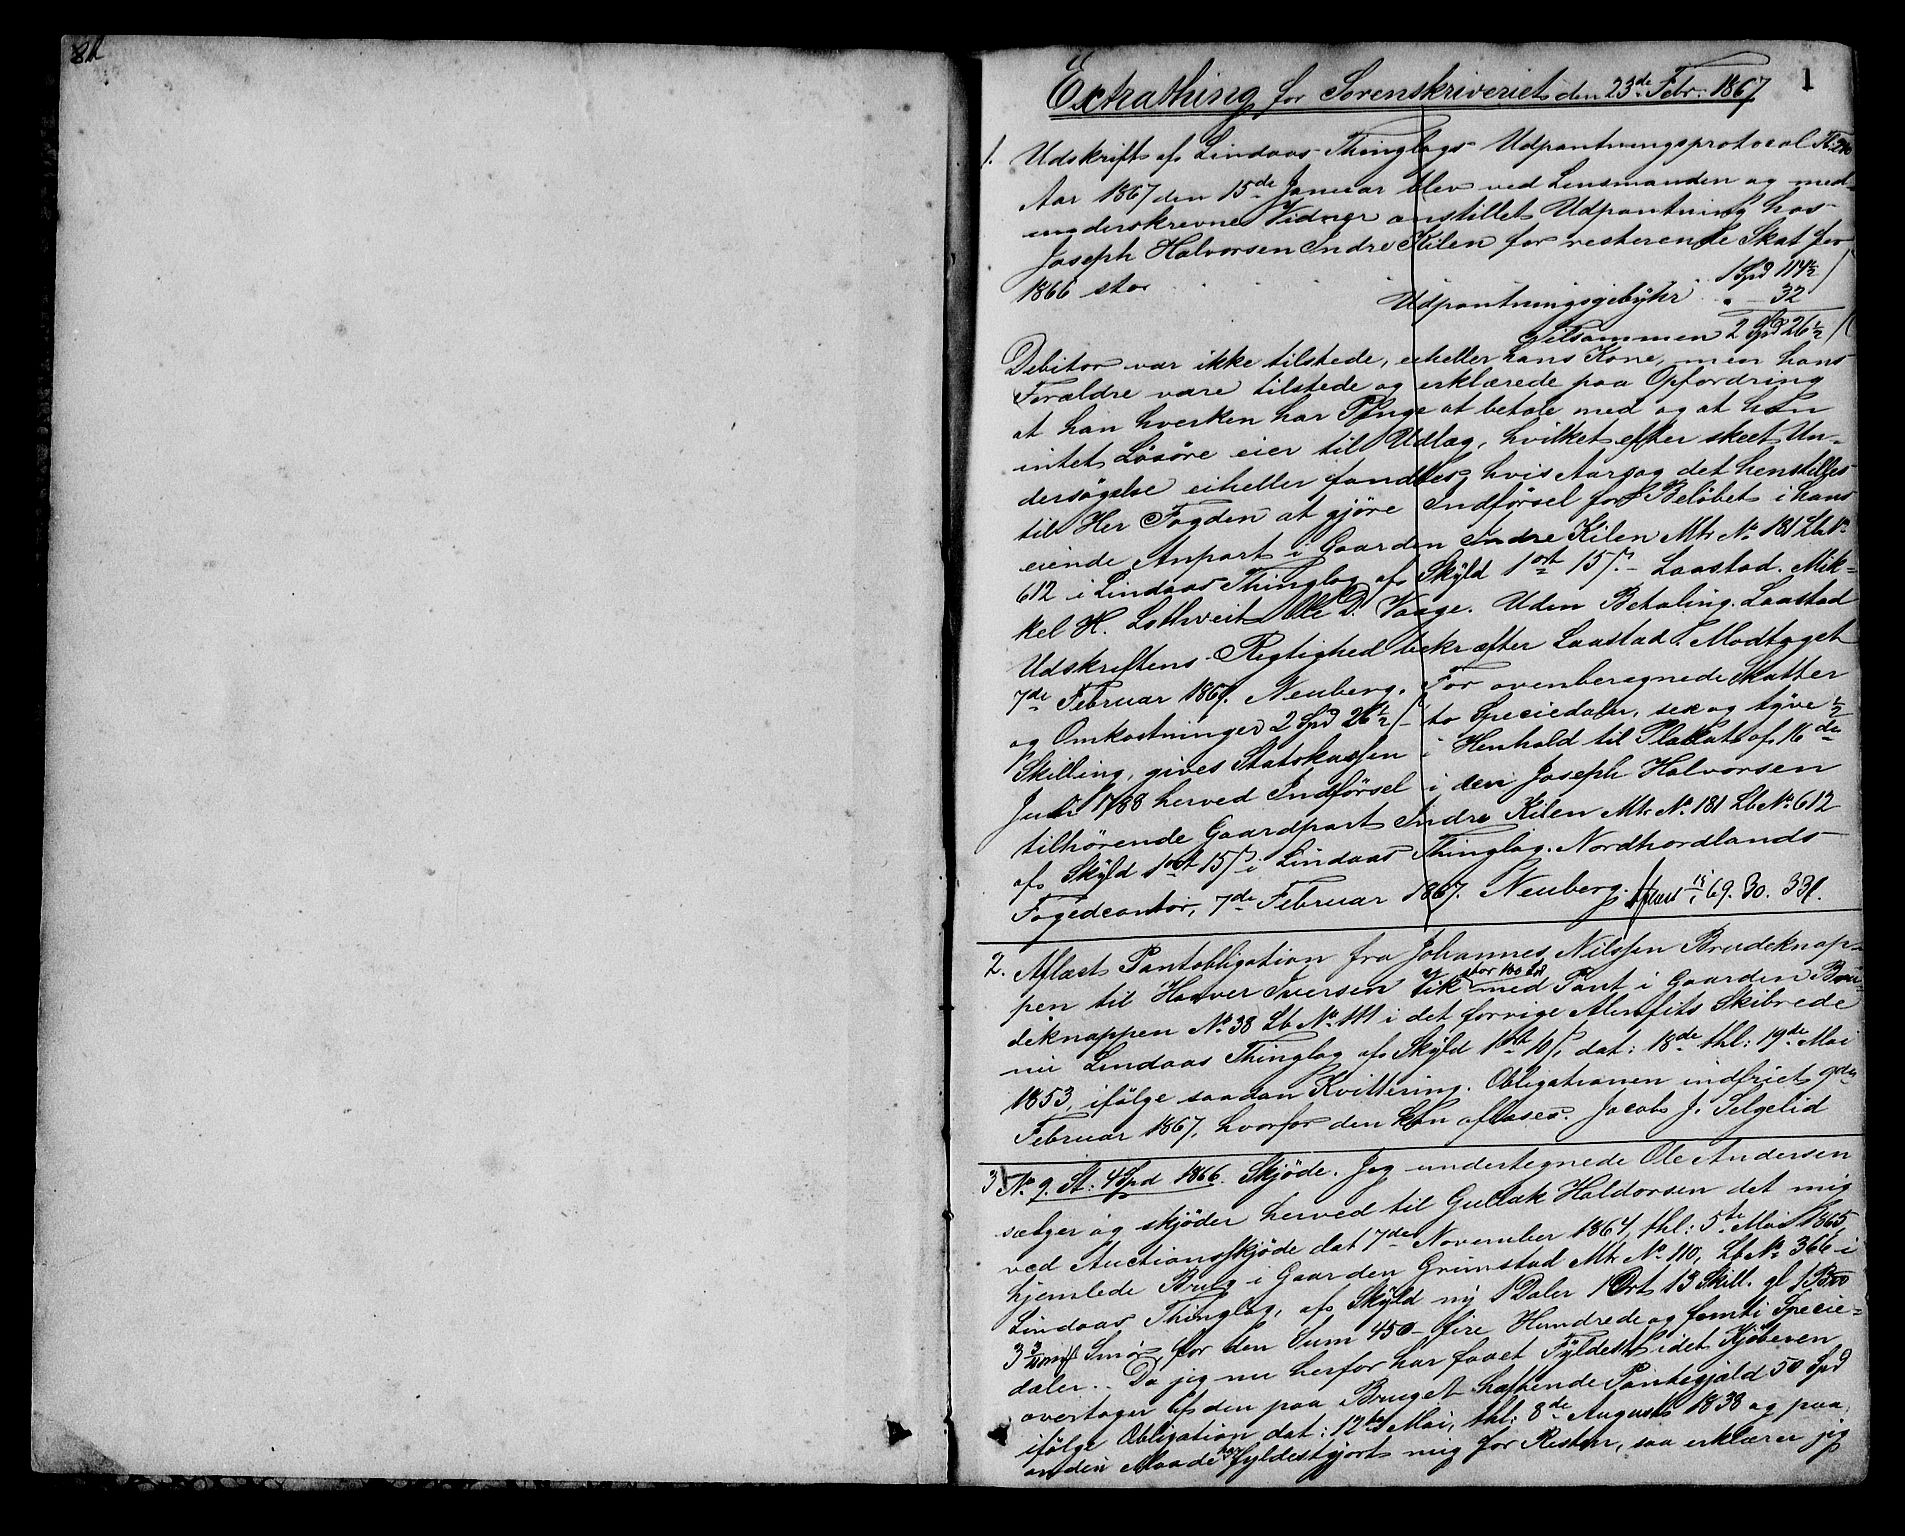 82
1
Extrathing for Sorenskriveriet den 23de Febr. 1867
1. Udskrift af Lindaas Thinglags Udpantningsprotocol
Aar 1867 den 15de Januar blev ved Lensmanden og med-
underskrevne Vidner anstillet Udpantning hos
Joseph Halvorsen Indre Kilen for resterende Skat for
1866 stor . . . 1 Spd 114½ ß
Udpantningsgebyhr " - 32
Tilsammen 2 Spd 26½ ß
Debitor var ikke tilstede, eiheller hans Kone, men hans
Forældre vare tilstede og erklærede paa Opfordring
at han hverken har Penge at betale med og at han
intet Løsøre eier til Udlæg, hvilket efter skeet Un-
dersøgelse eiheller fandtes, hvis Aarsag det henstilles
til Her Fogden at gjøre Indførsel for Beløbet i hans
eiende Anpart i Gaarden Indre Kilen Mtr No 181 Lb No
612 i Lindaas Thinglag af Skyld 1 ort 15 ß. - Laastad. Mik-
kel H. Ole D. Vaage. Uden Betaling. Laastad
Udskriftens Rigtighed bekræfter Laastad. Modtaget
7de Februar 1867. Neuberg. For ovenberegnede Skatter
og Omkostninger 2 Spd 26½ ß - to Speciedaler, sex og tyve ½
Skilling, gives Statskassen i Henhold til Plakat af 16de
Juli 1788 herved Indførsel i den Joseph Halvorsen
tilhørende Gaardpart Indre Kilen Mtr No 181 Lb No 612
af Skyld 1 ort 15 ß i Lindaas Thinglag. Nordhordlands
Fogedcontor, 7de Februar 1867. Neuberg. 69. 30. 331.
2. Aflæst Pantobligation fra Johannes Nilssen Brudeknap-
pen til Haaver Iversen Vik stor 100 Spd med Pant i Gaarden Bru-
deknappen No 38 Lb No 111 i det forrige Alenfits Skibrede
nu Lindaas Thinglag af Skyld 1 ort 10 ß, dat: 18de thl: 19de Mai
1853, ifølge saadan Kvittering. Obligationen indfriet 9de
Februar 1867, hvorfor den kan aflæses. Jacob J. Selgelid
3 No 9. St: 4 Spd 1866. Skjøde. Jeg undertegnede Ole Andersen
sælger og skjøder herved til Gullak Haldorsen det mig
ved Auctionsskjøde dat 7de November 1864, thl: 5te Mai 1865,
hjemlede Brug i Gaarden Grimstad Mtr No 110, Lb No 366 i
Lindaas Thinglag, af Skyld ny 1 Daler 1 Ort 13 Skill. gl 1
3 Smør, for den Sum 450 - fire Hundrede og femti Specie-
daler. . Da jeg nu herfor har faaet Fyldest, idet Kjøberen
overtager den paa Bruget heftende Pantegjæld 50 Spd
ifølge Obligation dat: 12te Mai, thl: 8de August 1838 og paa
anden Maade har fyldestgjort mig for Resten, saa erklærer jeg